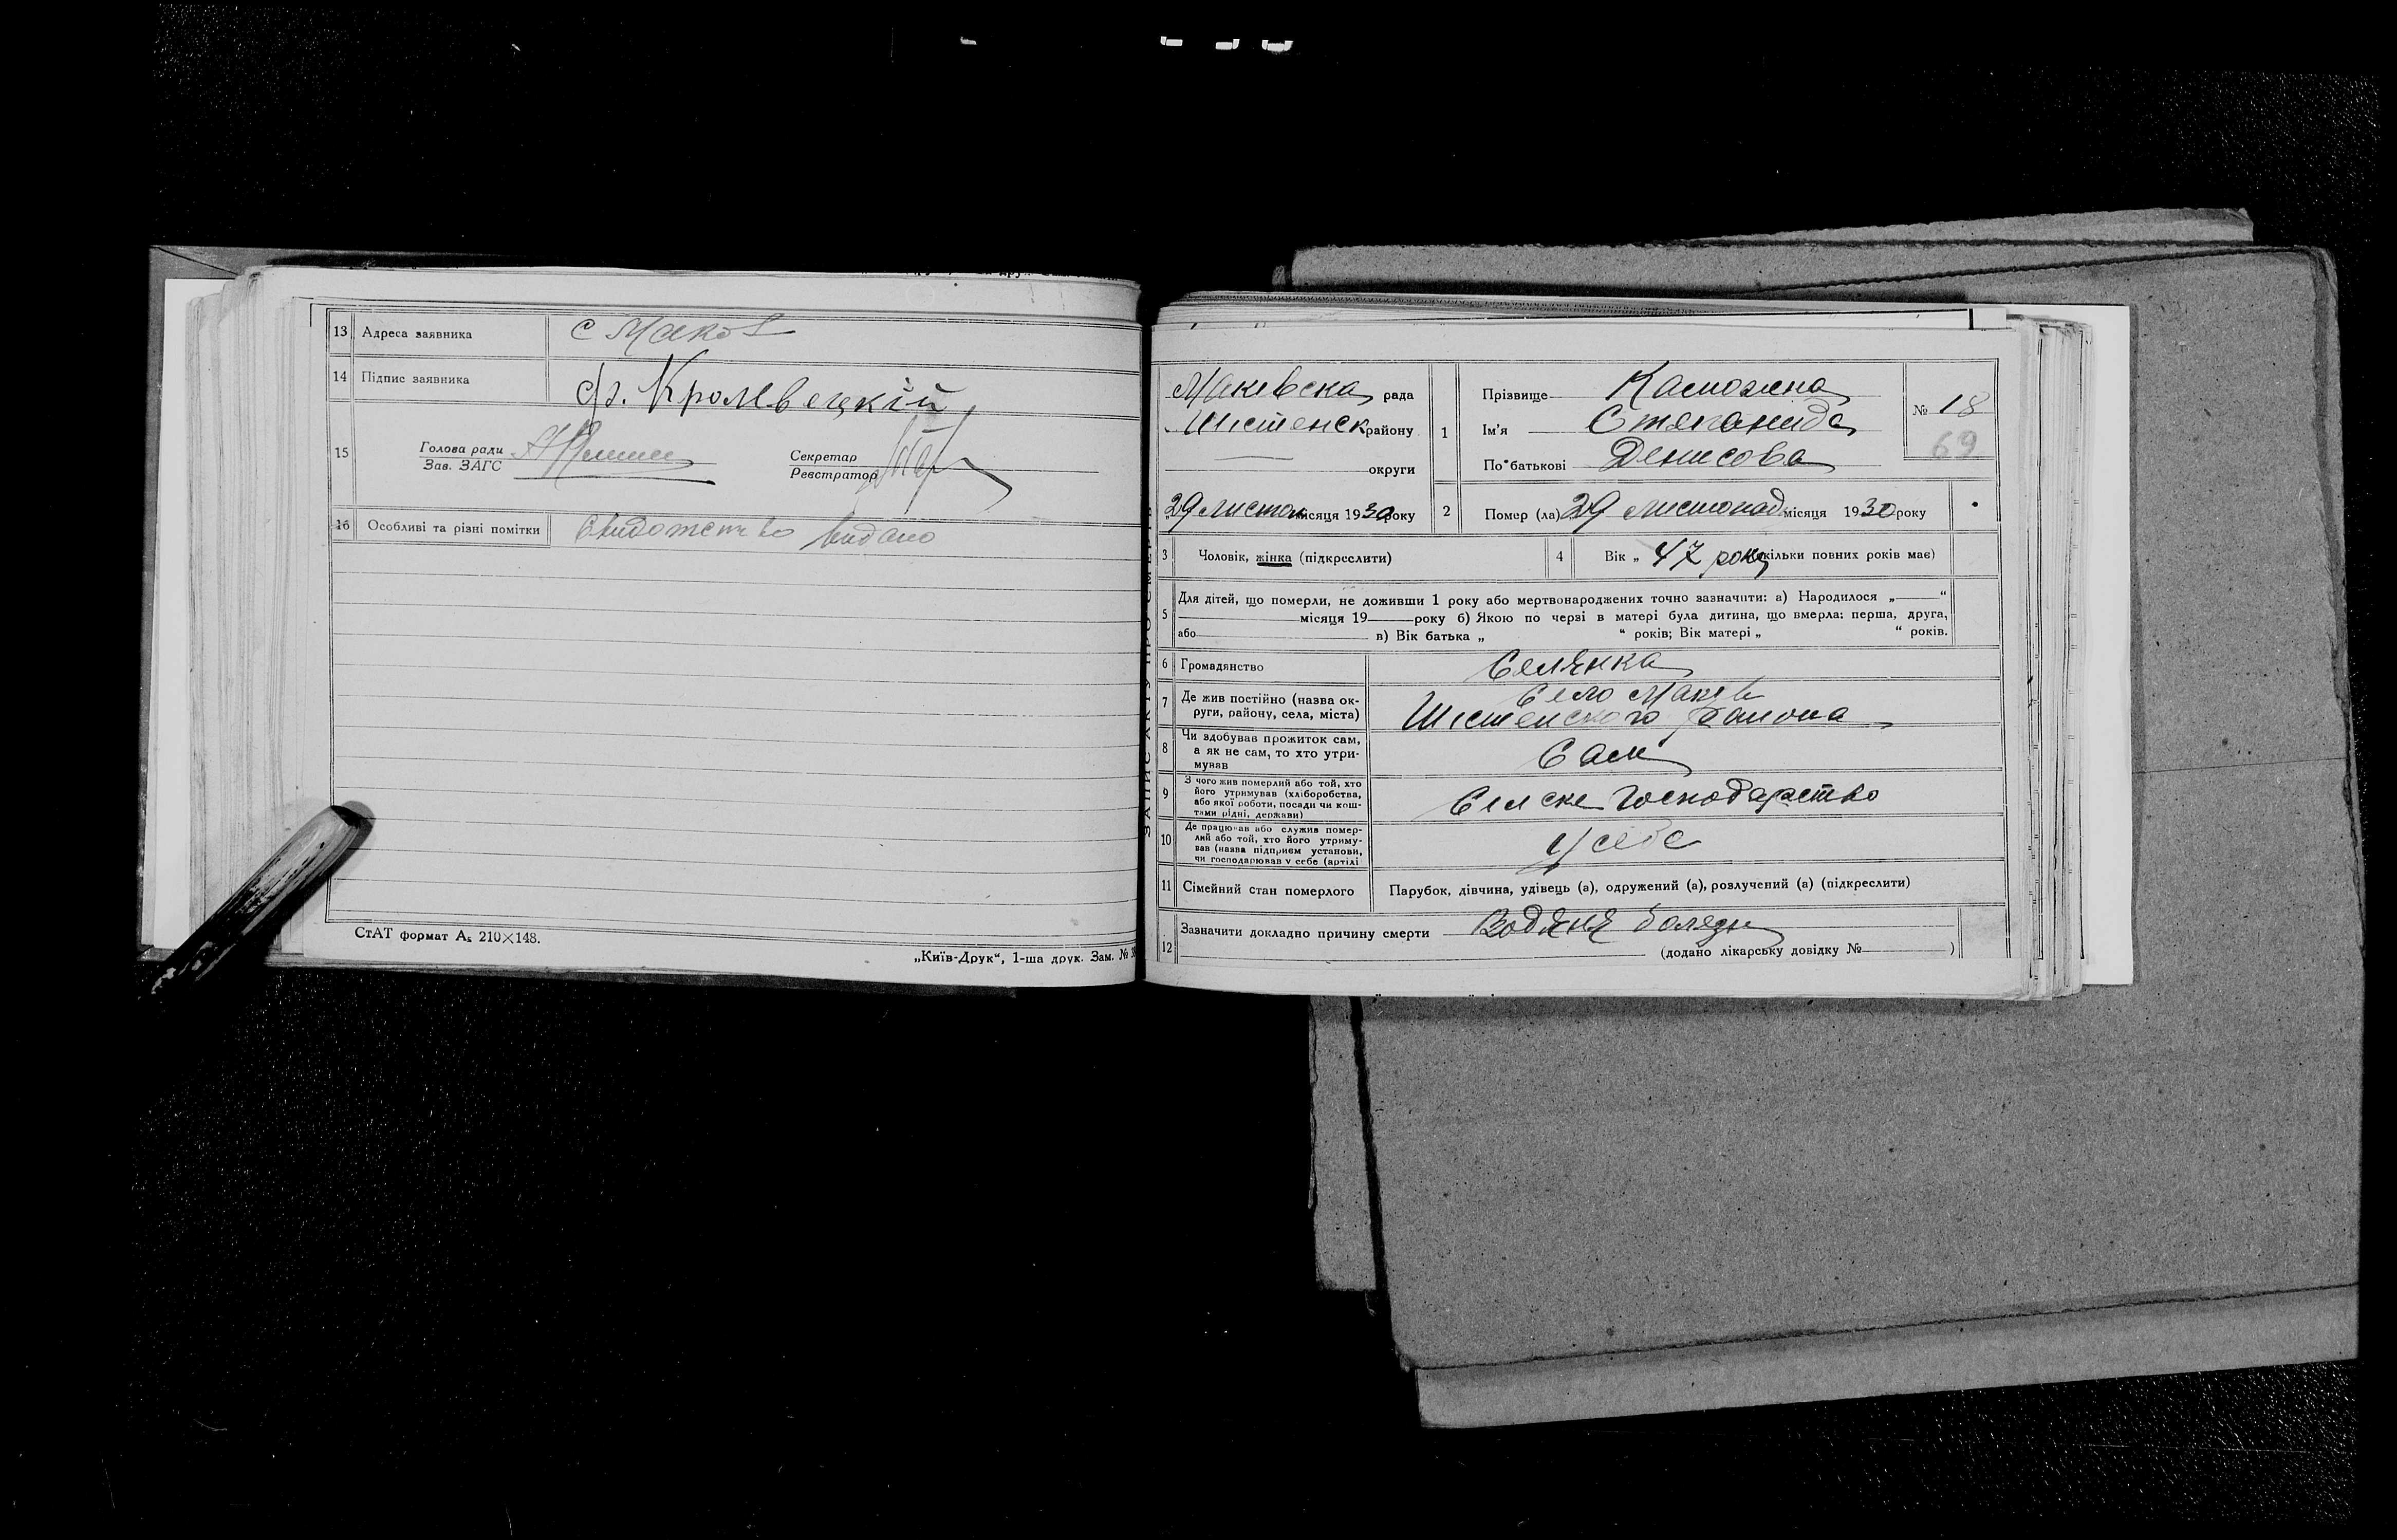 13 Адреса заявника с Маков
14 Підпис заявника Кролевецкій
15 Голова ради
Зав. ЗАГС
Секретар
Реєстратор
16 Особливі та різні помітки Свидотство видано
СтАТ формат А₅ 210×148.
„Київ-Друк“, 1-ша друк. Зам. №
Макевска рада
Шістенск району
округи
29 Листоп місяця 1930 року
1 Прізвище Каможна
Ім'я Стяпанида
По батькові Денисова
№ 18
69
2 Помер (ла) 29 листопад місяця 1930 року
3 Чоловік, жінка (підкреслити)
4 Вік „ 47 рокив (скільки повних років має)
5 Для дітей, що померли, не доживши 1 року або мертвонароджених точно зазначити: а) Народилося „ “
місяця 19 року б) Якою по черзі в матері була дитина, що вмерла: перша, друга,
або в) Вік батька „ “ років; Вік матері „ “ років.
6 Громадянство Селянка
7 Де жив постійно (назва ок-
руги, району, села, міста)
Село Макев
Шістенского района
8 Чи здобував прожиток сам,
а як не сам, то хто утри-
мував
Сам
9 З чого жив померлий або той, хто
його утримував (хліборобства,
або якої роботи, посади чи кош-
тами рідні, держави)
Селске господарство
10 Де працював або служив помер-
лий або той, хто його утриму-
вав (назва підприєм установи,
чи господарював у себе (артілі
У себе
11 Сімейний стан померлого Парубок, дівчина, удівець (а), одружений (а), розлучений (а) (підкреслити)
12 Зазначити докладно причину смерти Водяня болязн
(додано лікарську довідку № )